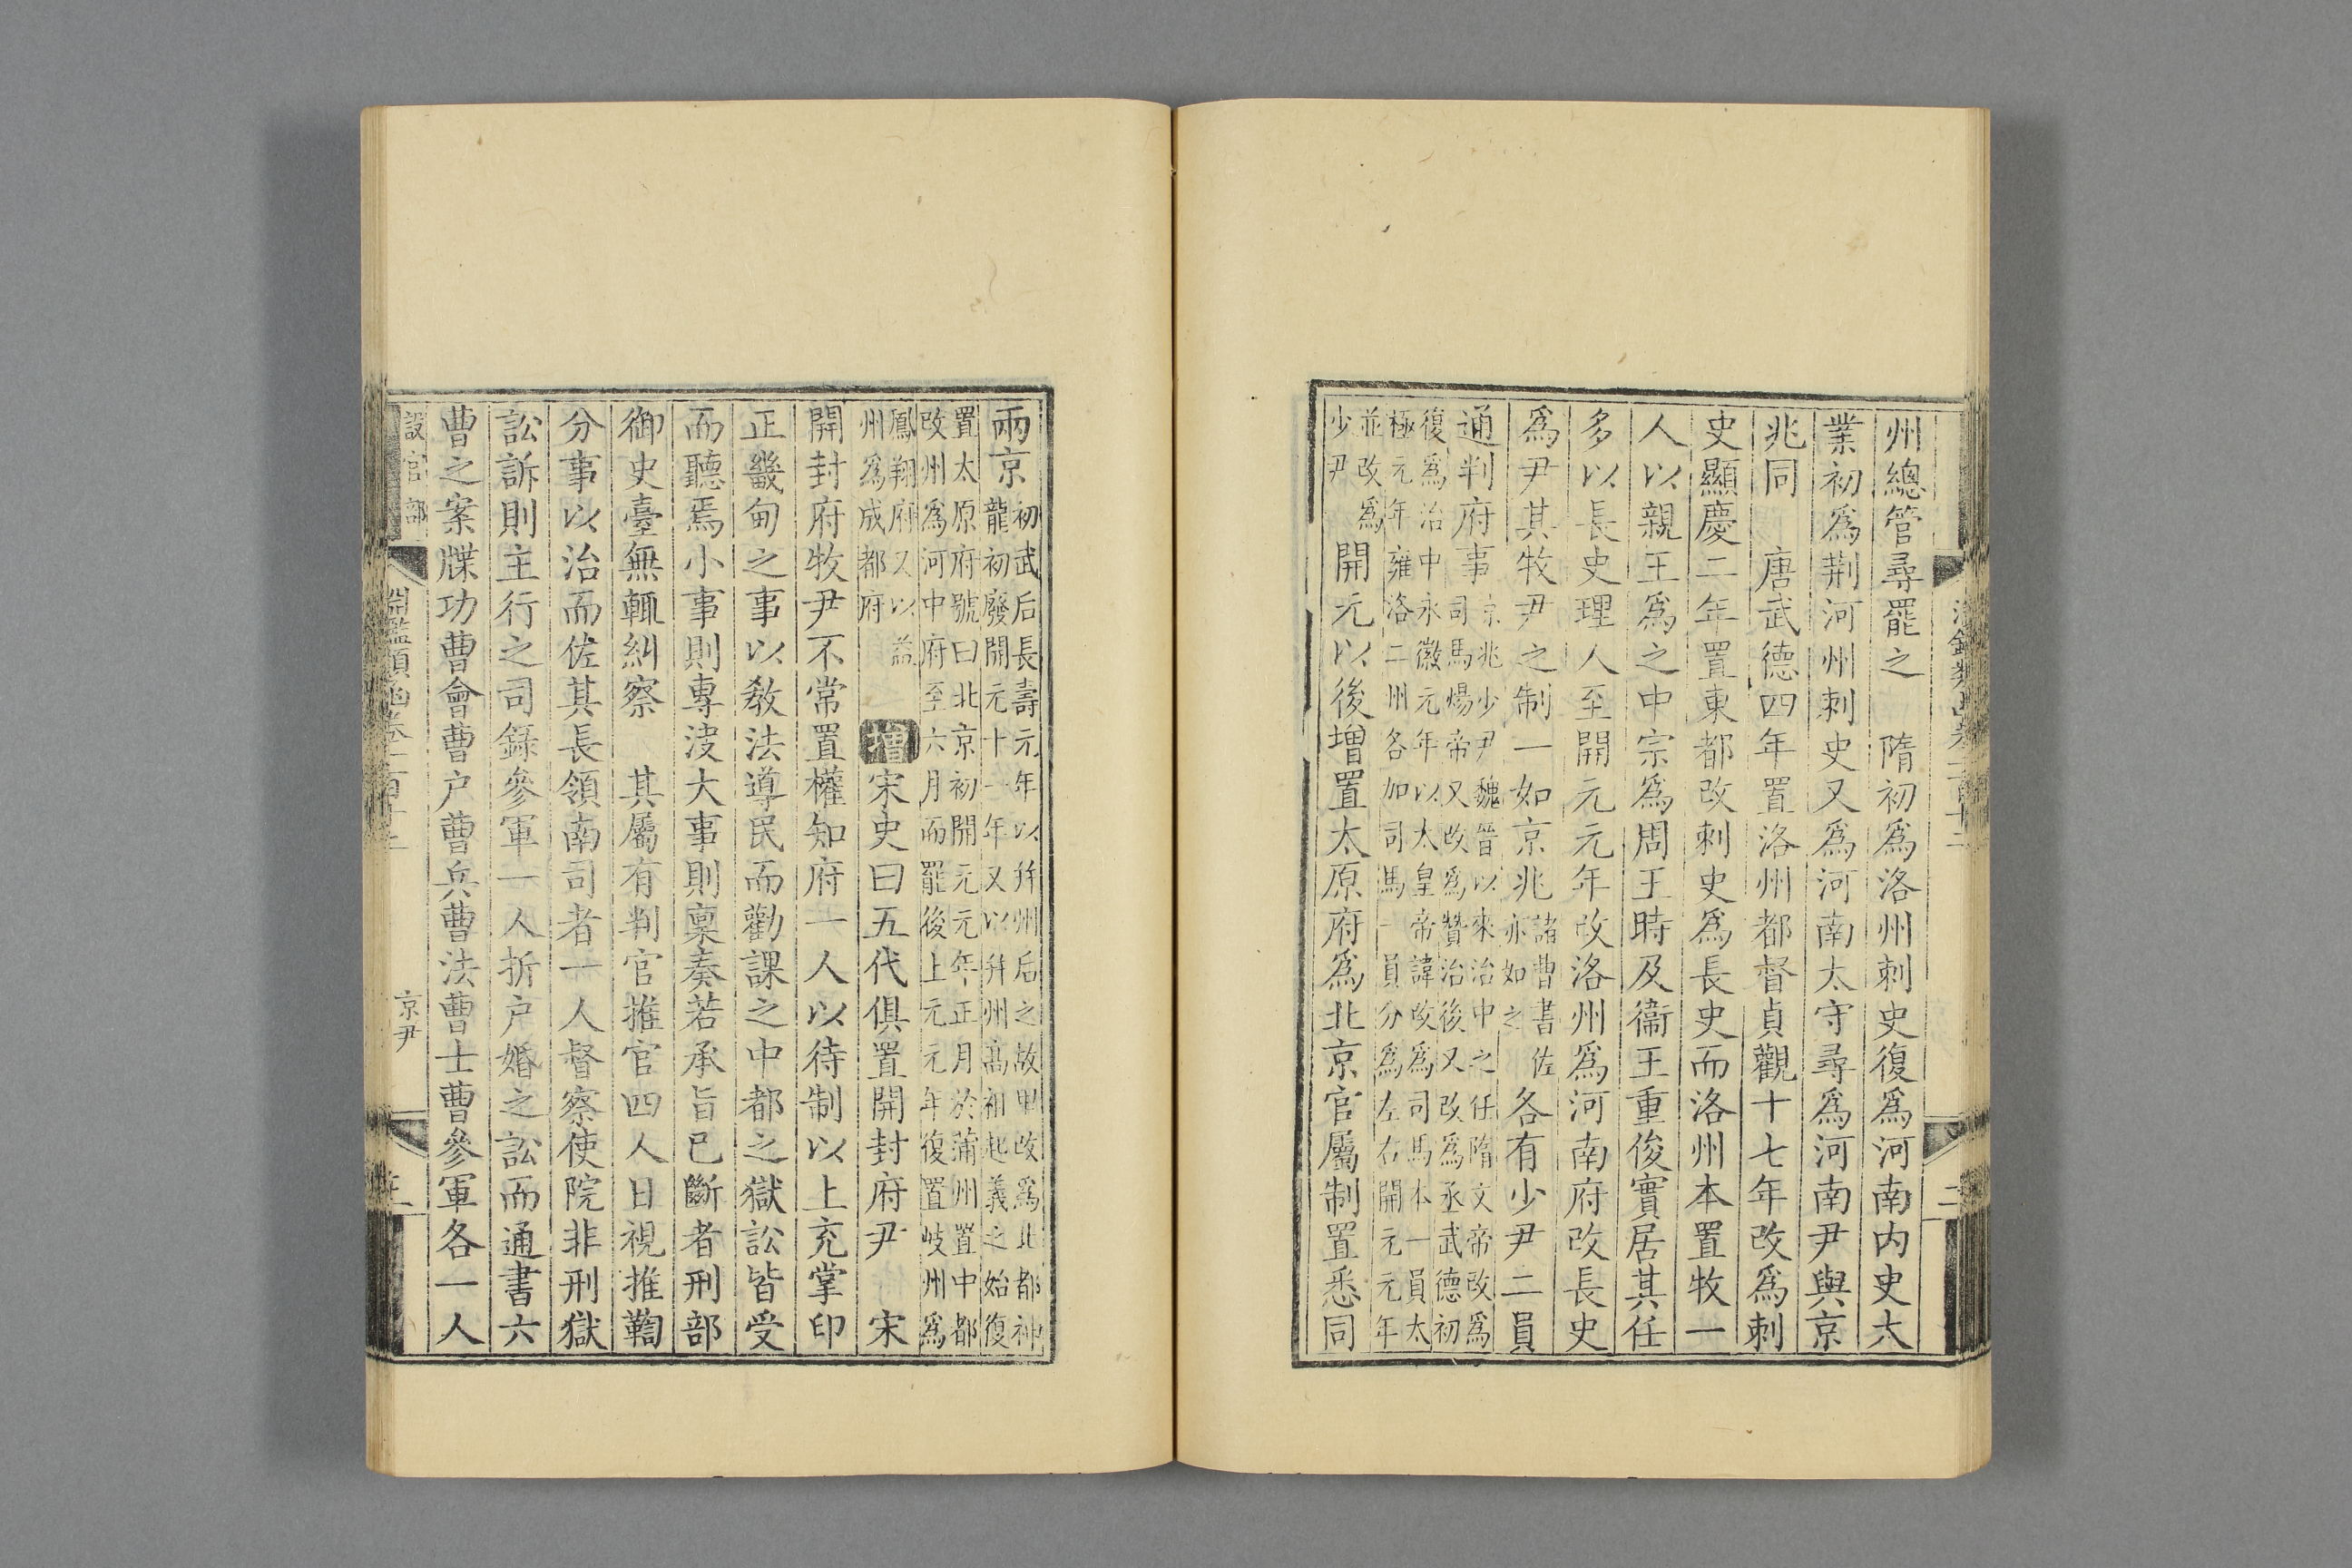 州總管尋罷之　隋初爲洛州刺史復爲河南内史大
業初爲荆河州刺史又爲河南太守尋爲河南尹與京
兆同　唐武德四年置洛州都督貞觀十七年改爲刺
史顯慶二年置東都改刺史爲長史而洛州本置牧一
人以親王爲之中宗爲周王時及衞王重俊實居其任
多以長史理人至開元元年改洛州爲河南府改長史
爲尹其牧尹之制一如京兆諸曹書佐亦如之各有少尹二員
通判府事京兆少尹魏晉以來治中之任隋文帝改爲司馬煬帝又改爲贊治後又改爲丞武德初
復爲治中永徽元年以太皇帝諱改爲司馬本一員太極元年雍洛二州各加司馬一員分爲左右開元元年
並改爲少尹開元以後增置太原府爲北京官屬制置悉同
兩京初武后長壽元年以并州后之故里改爲北都神龍初廢開元十一年又以并州高祖起義之始復
置太原府號曰北京初開元元年正月於蒲州置中都改州爲河中府至六月而罷後上元元年復置岐州爲
鳳翔府又以益州爲成都府　增宋史曰五代俱置開封府尹　宋
開封府牧尹不常置權知府一人以待制以上充掌印
正畿甸之事以教法導民而勸課之中都之獄訟皆受
而聽焉小事則專決大事則稟奏若承旨已斷者刑部
御史臺無輒糾察　其屬有判官推官四人日視推鞫
分事以治而佐其長領南司者一人督察使院非刑獄
訟訴則主行之司錄參軍一人折户婚之訟而通書六
曹之案牒功曹會曹户曹兵曹法曹士曹參軍各一人
設官部
京尹
二